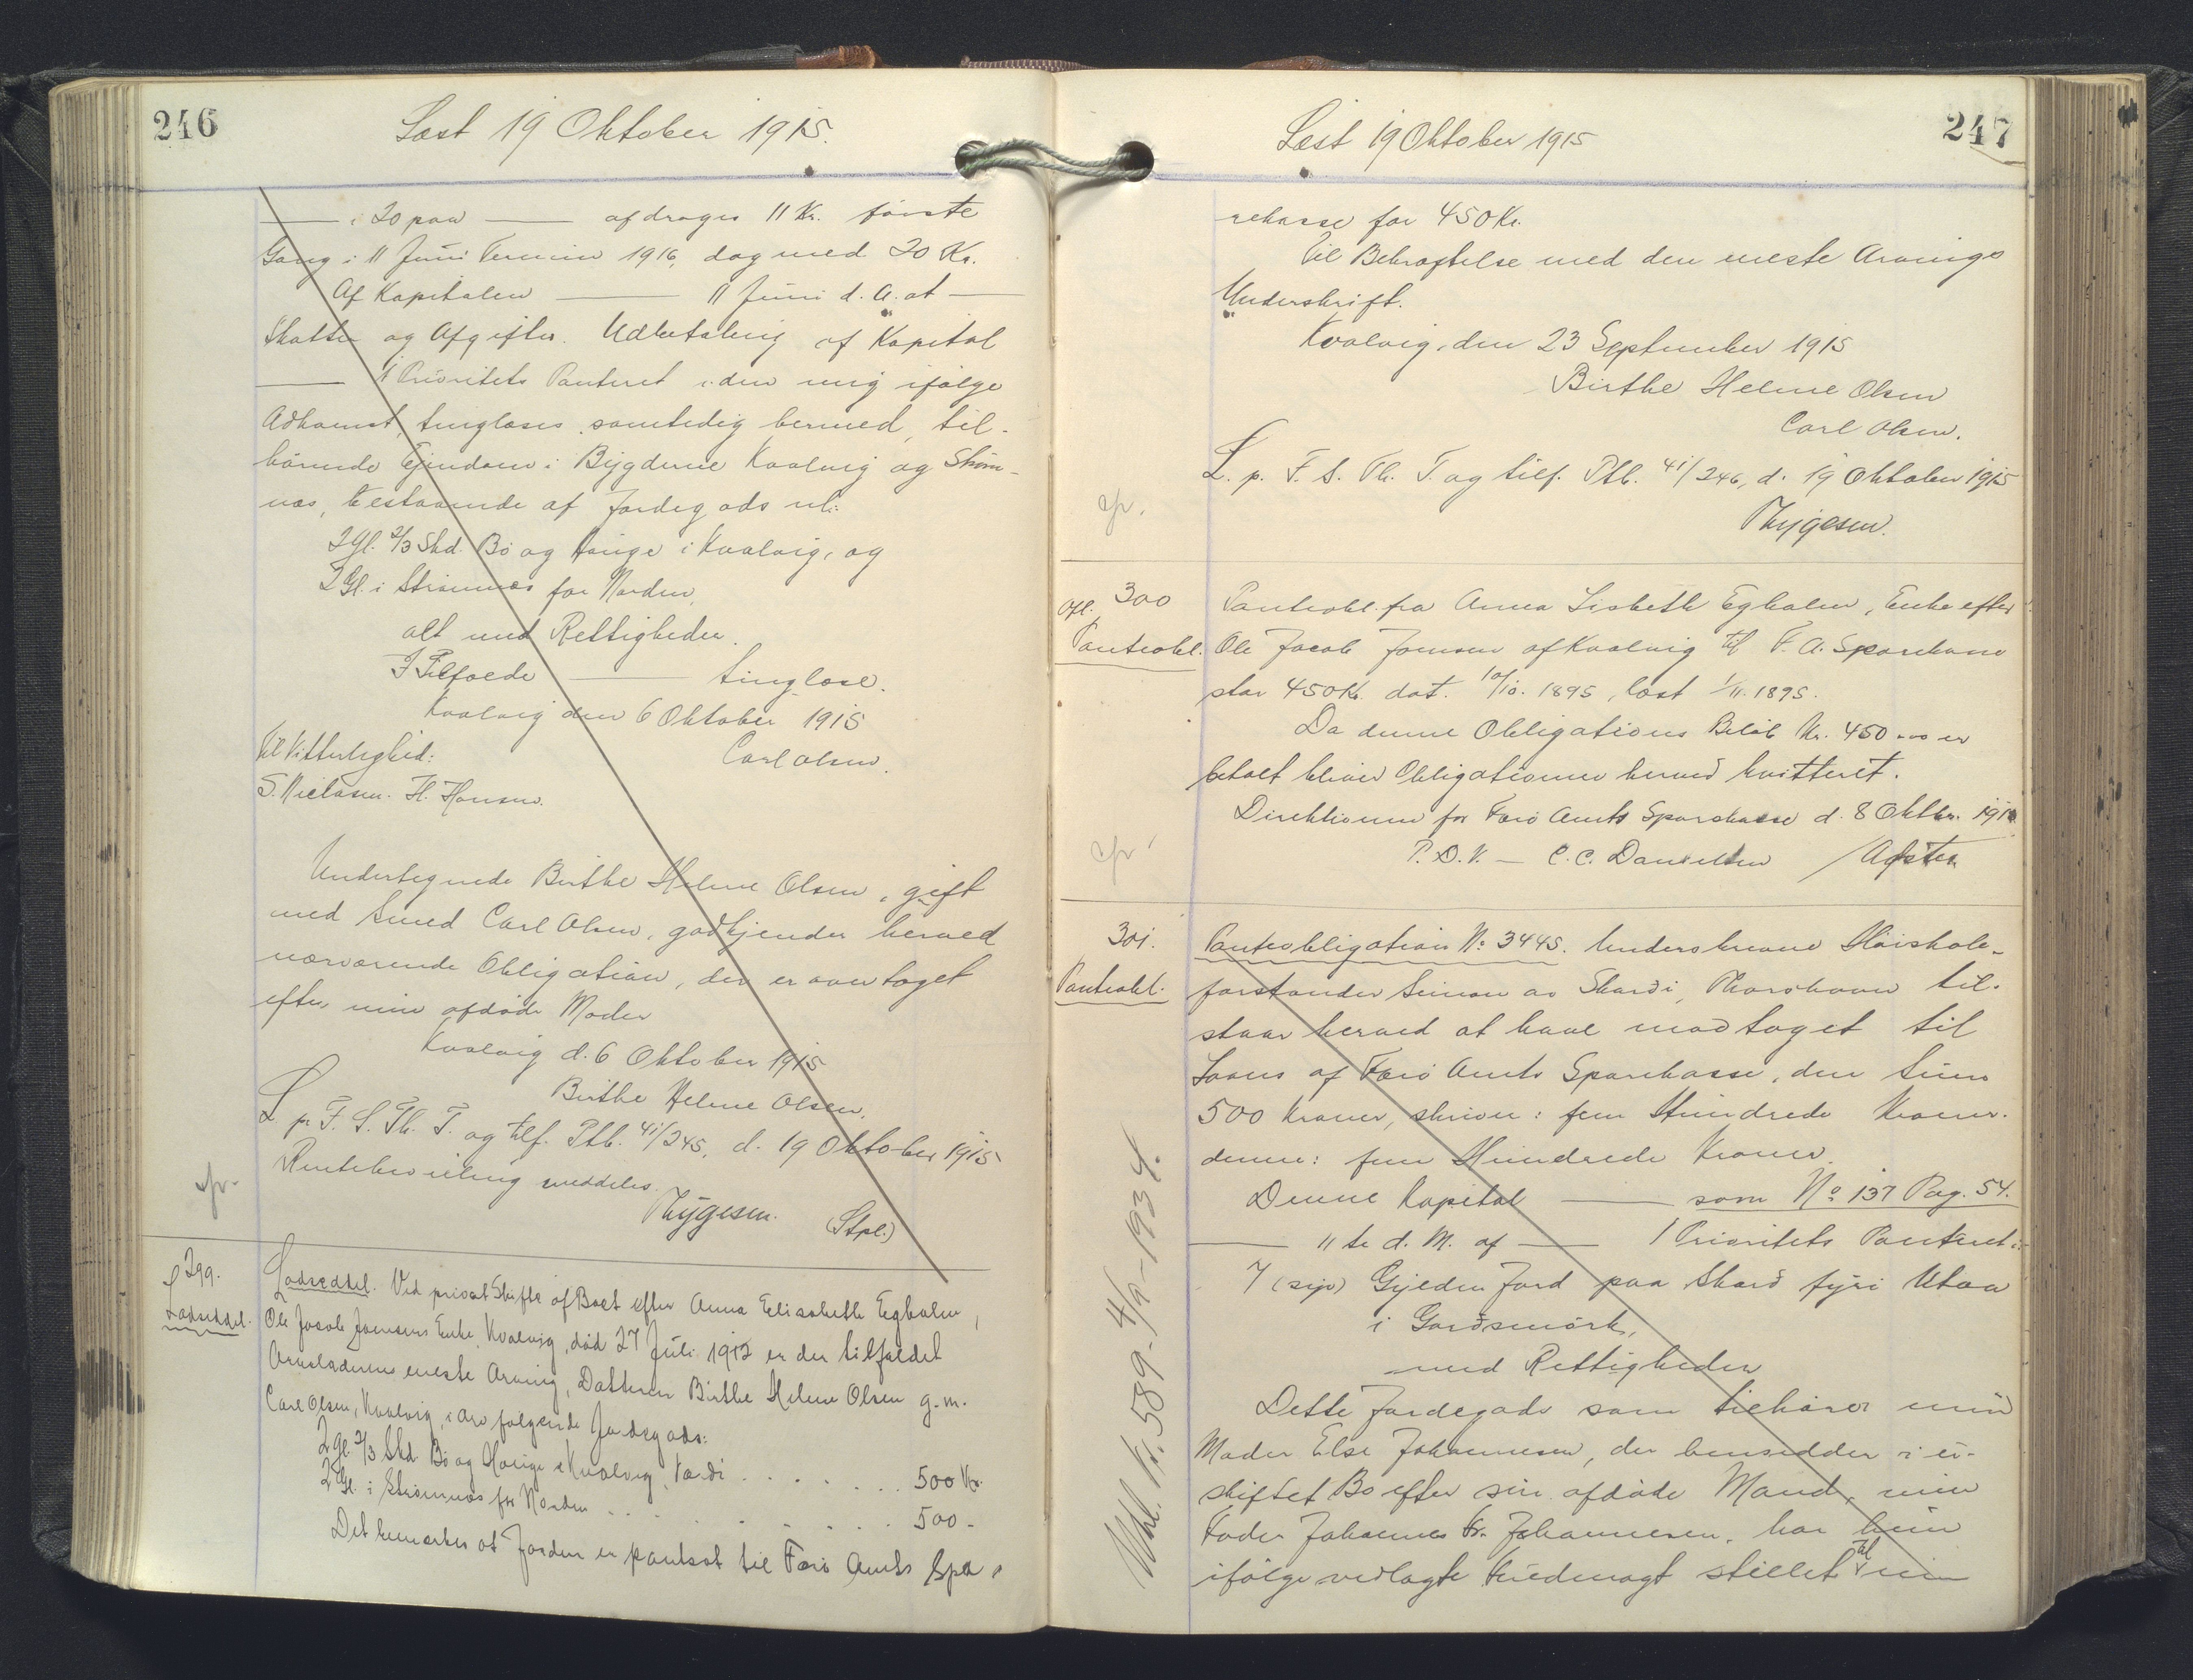 246
Læst 19 Oktober 1915.
— i 20 paa — afdrages 11 Kr. første
Gang i 11 Juni Termin 1916, dog med 20 Kr.
Af Kapitalen — 11 Juni d. A. at —
Skatter og Afgifter. Udbetaling af Kapital
— 1 Prioritets Panteret i den mig ifølge
Adkomst, tinglæses samtidig hermed, til-
hørende Ejendom i Bygderne Kvalvig og Strøm-
næs, bestaaende af Jordegods nl:
2 Gl. 2/3 Skd. Bø og Hauge i Kvalvig, og
2 Gl. i Strømnæs for Norden,
alt med Rettigheder.
I Tilfælde — tinglæse.
Kvalvig den 6 Oktober 1915
Til Vitterlighed: Carl Olsen.
S. Nielsen. H. Hansen.
Undertegnede Birthe Helene Olsen, gift
med Smed Carl Olsen, godkjender herved
nærværende Obligation, der er overtaget
efter min afdøde Moder
Kvalvig d. 6 Oktober 1915
Birthe Helene Olsen.
L. p. F. S. Th. T. og tilf. Ptb. 41/245, d. 19 Oktober 1915
Rentebevilling meddeles.
cfr.
Thygesen. (Stpl.)
299.
Lodseddel.
Lodseddel. Ved privat Skifte af Boet efter Anna Elisabeth Egholm,
Ole Jacob Joensens Enke, Kvalvig, død 27 Juli 1912 er der tilfaldet
Arveladerens eneste Arving, Datteren Birthe Helene Olsen g. m.
Carl Olsen, Kvalvig, i Arv følgende Jordegods:
2 Gl. 2/3 Skd Bø og Hauge i Kvalvig, Værdi . . . . . . . 500 Kr.
2 Gl. i Strømnæs for Norden . . . . . . . . 500 -
Det bemærkes at Jorden er pantsat til Færø Amts Spa-
247
Læst 19 Oktober 1915
rekasse for 450 Kr.
Til Bekræftelse med den eneste Arvings
Underskrift.
Kvalvig, den 23 September 1915
Birthe Helene Olsen
Carl Olsen.
L. p. F. S. Th. T. og tilf. Ptb. 41/246, d. 19 Oktober 1915
cfr.
Thygesen.
Afl. 300
Panteobl.
Panteobl. fra Anna Lisbeth Egholm, Enke efter
Ole Jacob Joensen af Kvalvig til F. A. Sparekasse
stor 450 Kr. dat. 10/10. 1895, læst 1/11. 1895.
Da denne Obligations Beløb Kr. 450 er
betalt bliver Obligationen herved kvitteret.
Direktionen for Færø Amts Sparekasse d. 8 Oktbr. 191
cfr
P. D. V. — C. C. Danielsen /
301.
Panteobl.
Panteobligation No 3445. Underskrevne Højskole-
forstander Simun av Skardi, Thorshavn til-
staar herved at have modtaget til
Laans af Færø Amts Sparekasse, den Sum
500 Kroner, skriver: fem Hundrede Kroner.
denne: fem Hundrede Kroner.
Denne Kapital — som No 137 Pag. 54.
— 11te d. M. af — 1 Prioritets Panteret i:
7 (syv) Gylden Jord paa Skard fyri Utaa
i Gardsmörk,
med Rettigheder
Dette Jordegods som tilhører min
Moder Else Johannesen, der hensidder i ui-
skiftet Bo efter sin afdøde Mand, min
Fader Johannes Fr. Johannesen, har hun
ifølge vedlagte Fuldmagt stillet til min
Udsl. No. 589 - 4/9 - 1934.